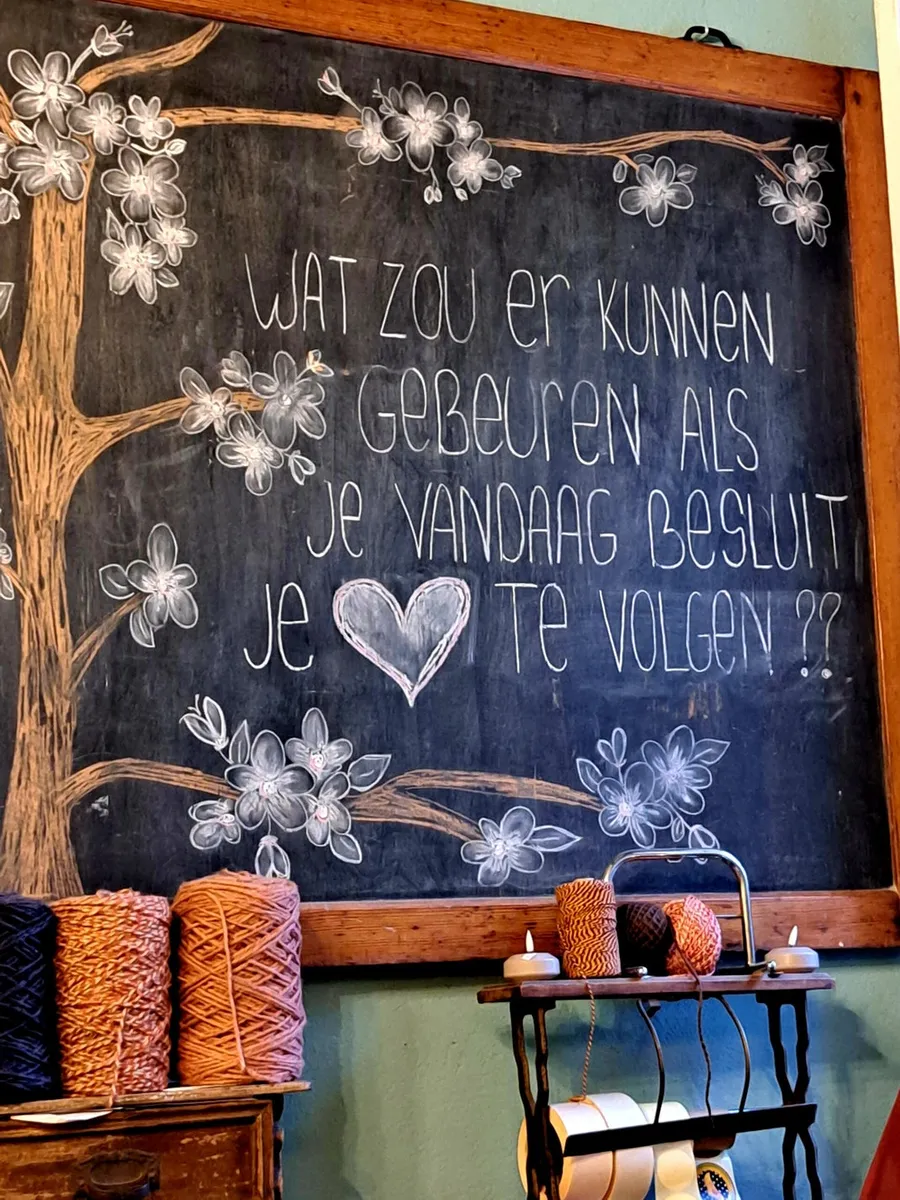 WAT ZOU er KUNNeN
GeBeUreN ALS
Je VANDAAG BeSLUIT
Je ❤ Te VOLGeN ??